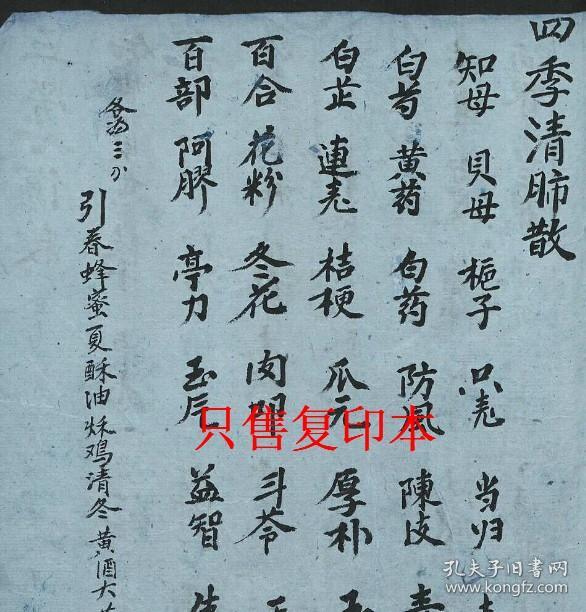 四季清肺散
知母 贝母 栀子 只壳 当归
白芍 黄药 白药 防风 陳皮
白芷 連壳 桔梗 瓜元 厚朴
百合 花粉 冬花 肉叩 斗苓
百部 阿膠 亭力 玉片 益智
各等三分
引春蜂蜜夏酥油秌鸡清冬黄酒大
只售复印本
孔夫子旧书网
www.kongfz.com